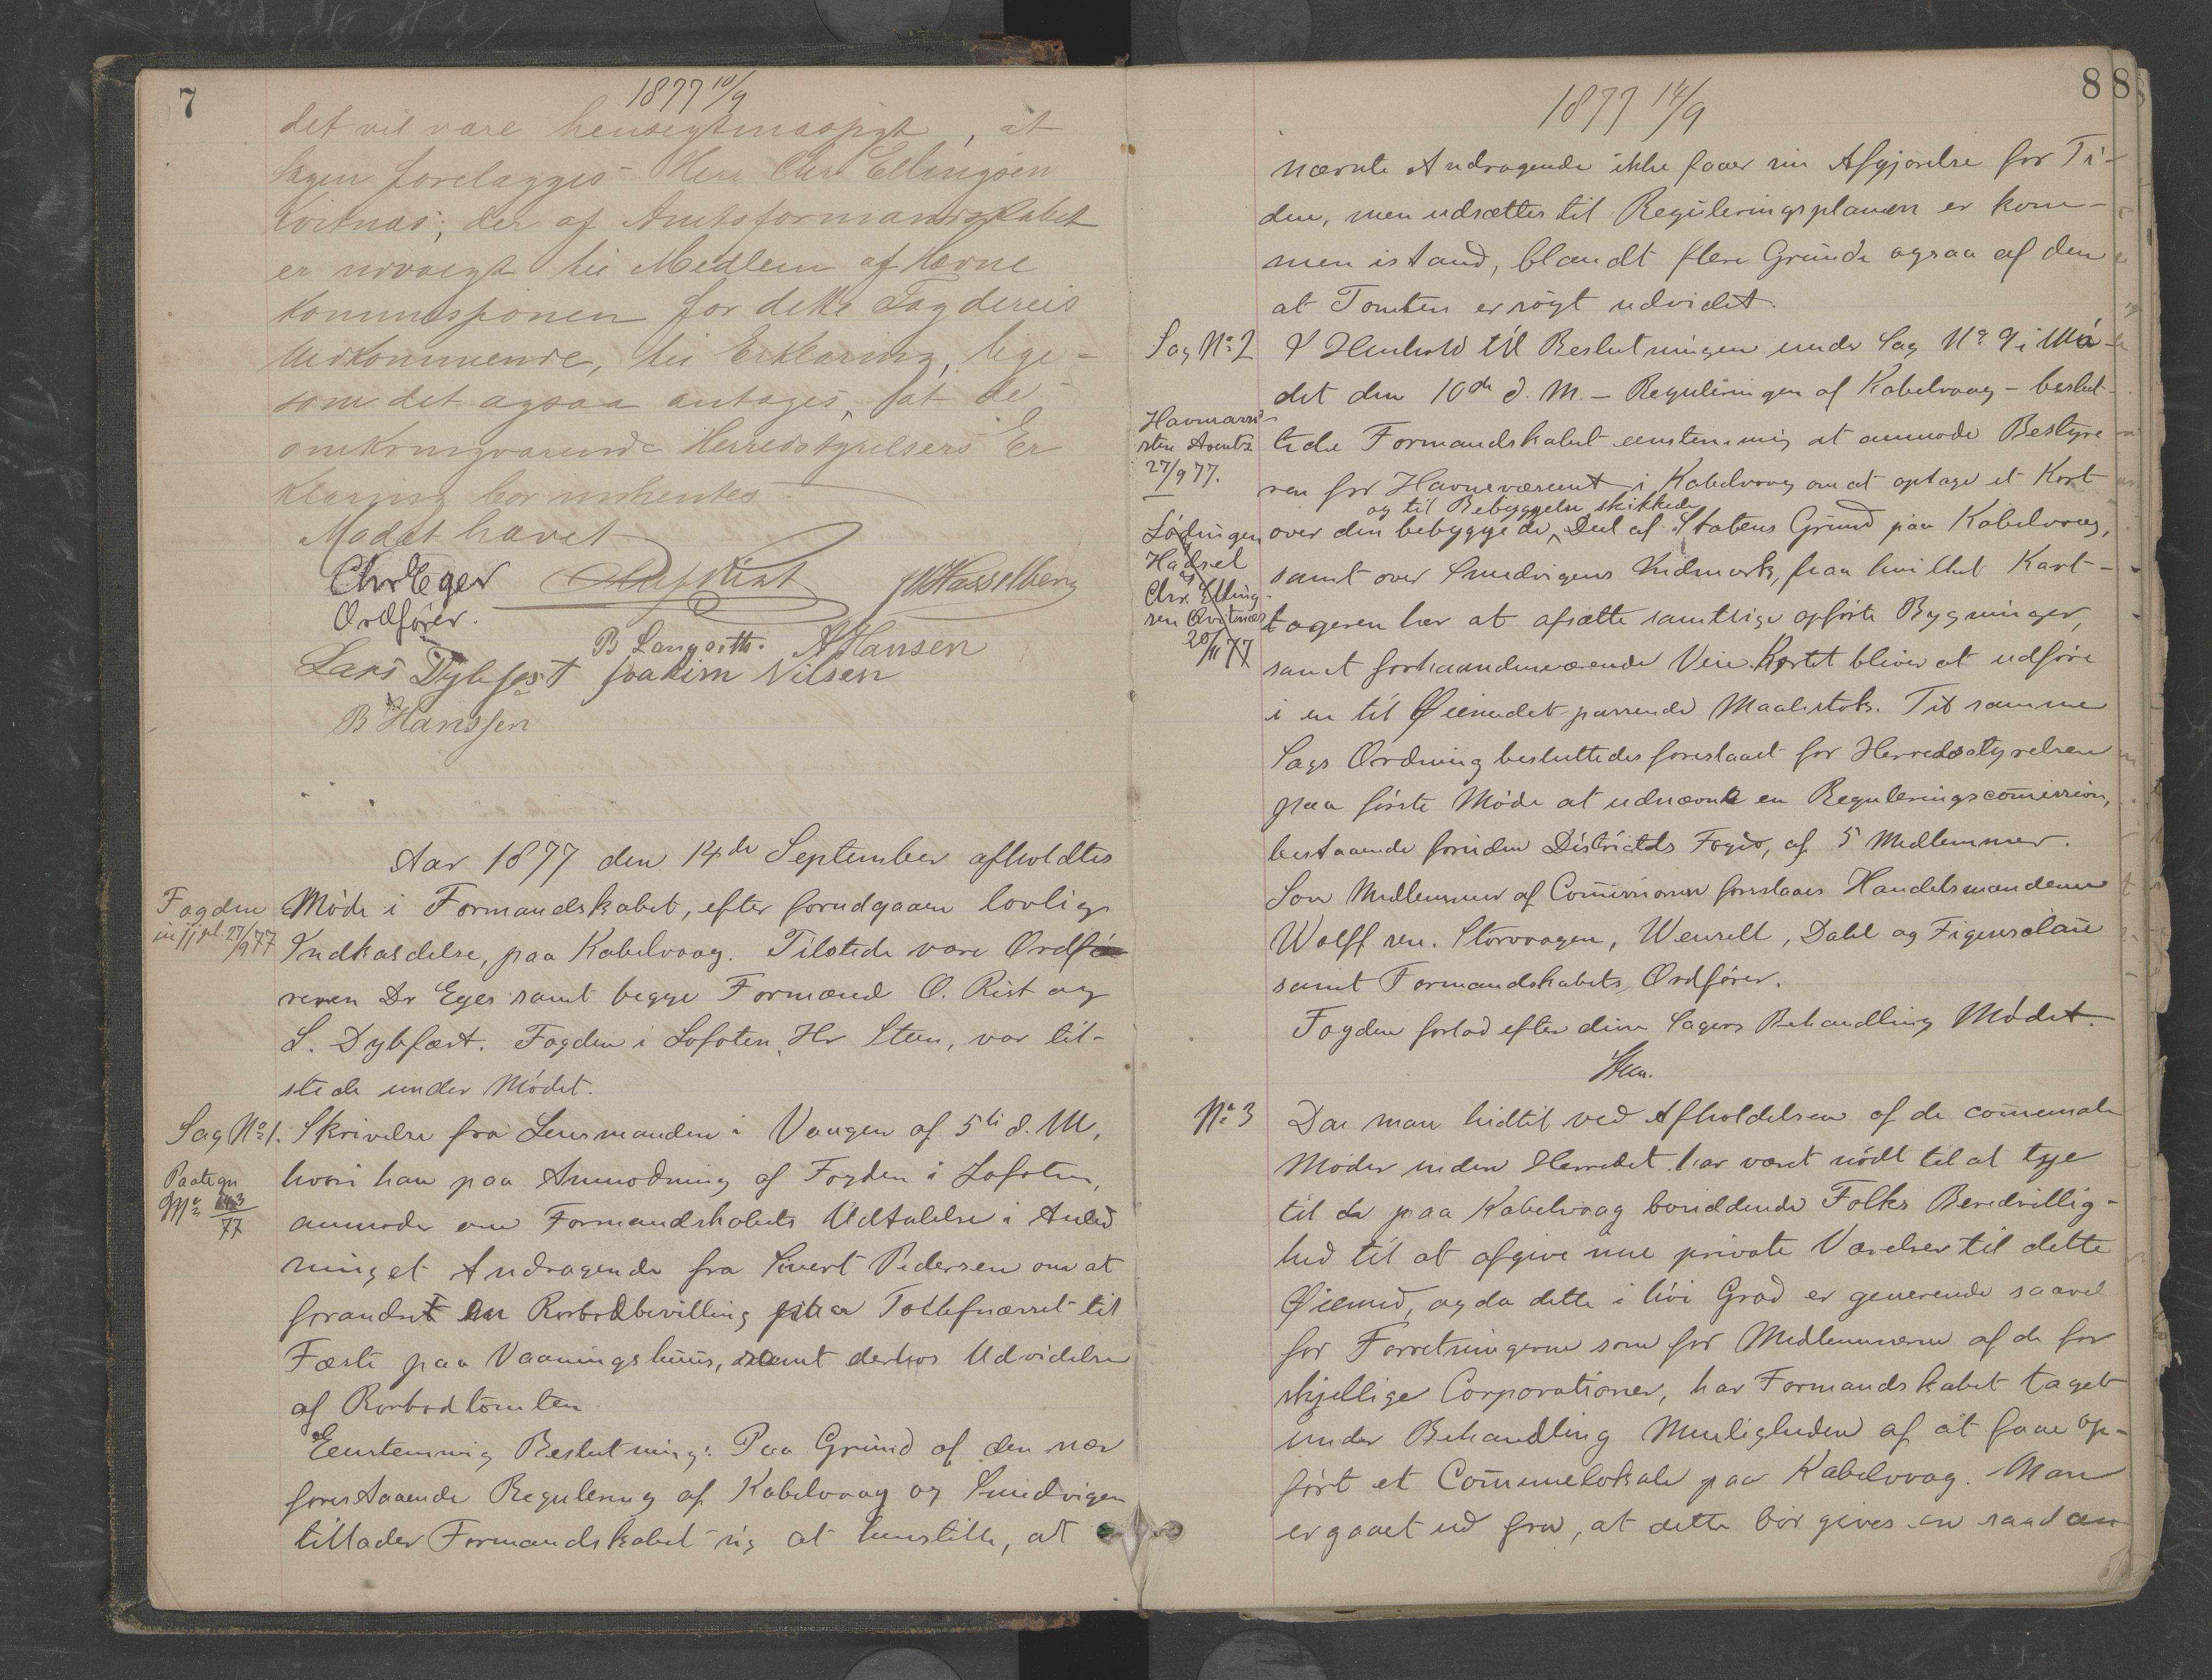 7
1877 10/9
det vil være hensigtmæssigt, at
Sagen forelægges Herr Chr Ellingsen
Kvitnæs, der af Amtsformandskabet
er udvalgt til Medlem af Havne
kommissionen for dette Fogderies
Vedkommende, til Erklæring, lige-
som det ogsaa antages, at de
omkringværende Herredstyrelsers Er
klæring bør indhentes.
Mødet hævet
Chr Eger
Ordfører.
Oluf Rist
Hasselberg
B Langseth. A Hansen
Lars Dybfest Joakim Nilsen
B Hanssen
Aar 1877 den 14de September afholdtes
Fogden
27/9 77
Møde i Formandskabet, efter forudgaaen lovlig
Indkaldelse, paa Kabelvaag. Tilstede vare Ordfø
reren Dr Eger samt begge Formænd O. Rist og
L. Dybfæst. Fogden i Lofoten, Hr Steen, var til-
stede under Mødet.
Sag No 1.
Skrivelse fra Lensmanden i Vaagen af 5te d. M,
Paategn
No 143/77
hvori han paa Anmodning af Fogden i Lofoten,
anmoder om Formandskabets Udtalelse i Anled
ning et Andragende fra Sivert Pedersen om at
forandret en Rorbodbevilling til
Fæste paa Vaaningshuus, samt derhos Udvidelse
af Rorbodtomten.
Eenstemmig Beslutning: Paa Grund af den nær
forestaaende Regulering af Kabelvaag og Smedvigen
tillader Formandskabet sig at henstille, at
8
1877 14/9
nævnte Andragende ikke faaer sin Afgjørelse for Ti-
den, men udsættes til Reguleringsplanen er kom-
men istand, blandt flere Grunde ogsaa af den
at Tomten er søgt udvidet.
Sag No 2
I Henhold til Beslutningen under Sag No 9 i Mø-
det den 10de d. M. – Reguleringen af Kabelvaag – beslut-
Havnaassi-
sten Arentz
27/9 77.
tede Formandskabet eenstemmig at anmode Bestyre
ren for Havnevæsenet i Kabelvaag om at optage et Kort
og til Bebyggelse skikkede
Lødingen
Hadsel
Chr. Elling-
sen Qvitnæs
20/11 77
over den bebyggede, Deel af Statens Grund paa Kabelvaag,
samt over Smedvigens Indmark, paa hvilket Kart-
tageren har at afsætte samtlige opførte Bygninger,
samt forhaandenværende Veie. Kortet bliver at udføre
i en til Øiemedet passende Maalestok. Til samme
Sags Ordning besluttedes foreslaaet for Herredsstyrelsen
paa første Møde at udnævne en Reguleringscom̄ission,
bestaaende foruden Districtets Foged, af 5 Medlemmer.
Som Medlemmer af Com̄issionen foreslaaes Handelsmændene
Wolff sen. Storvaagen, Wensell, Dahl og Figenschau
samt Formandskabets Ordfører.
Fogden forlod efter denne Sagers Behandling Mødet.
Steen.
No 3
Da man hidtil ved Afholdelsen af de com̄unale
Møder inden Herredet har været nødt til at tye
til de paa Kabelvaag boniddende Folks Beredvillig-
hed til at afgive sine private Værelser til dette
Øiemed, og da dette i høi Grad er generende saavel
for Forretningerne som for Medlemmerne af de for
skjellige Corporationer, har Formandskabet taget
under Behandling Muligheden af at faae op-
ført et Com̄unelokale paa Kabelvaag. Man
er gaaet ud fra, at dette bør gives en saadan